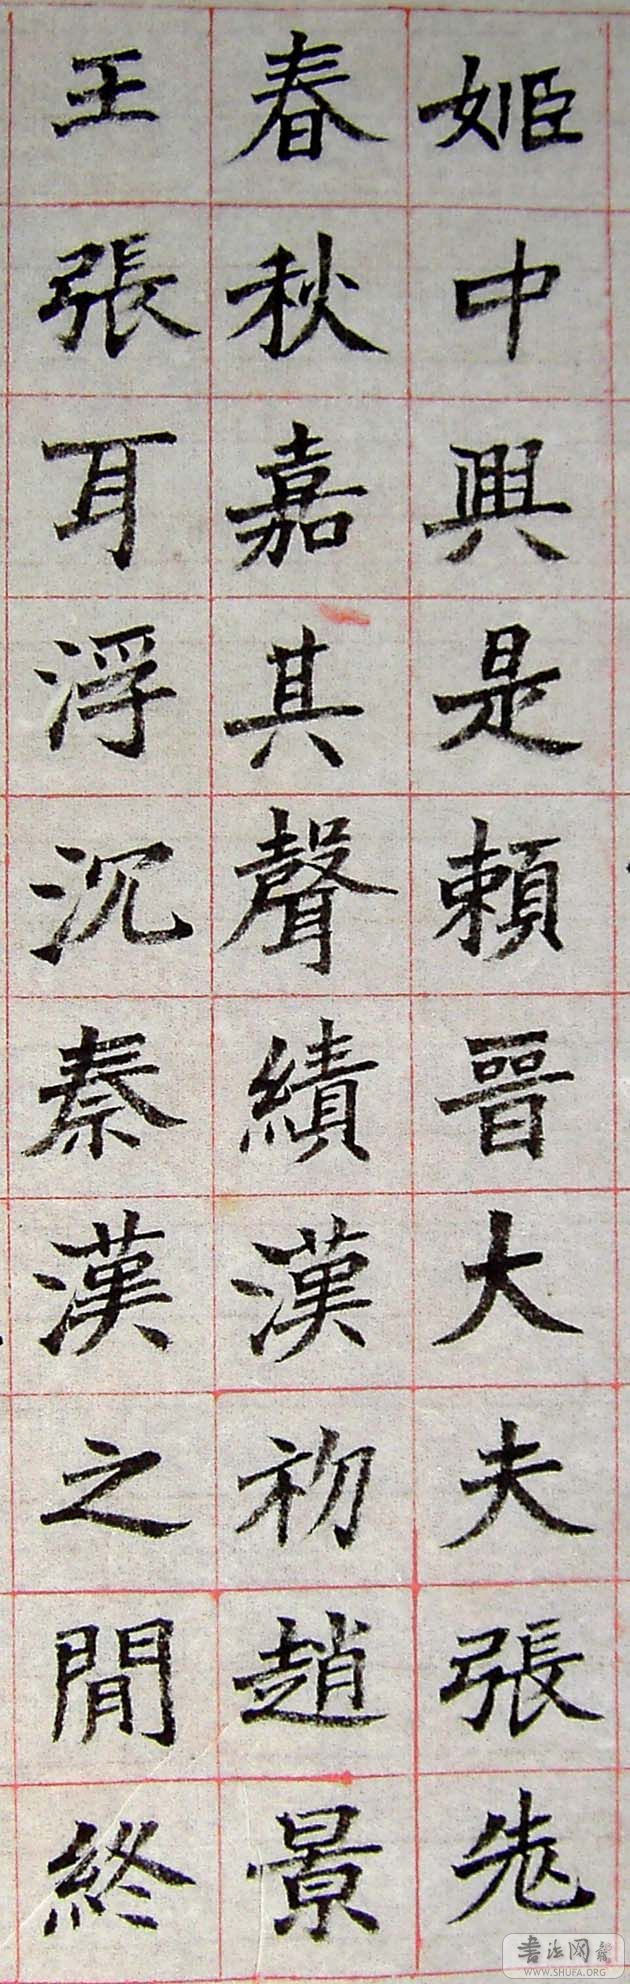 姬中興是賴晉大夫張老
春秋嘉其聲績漢初趙景
王張耳浮沉秦漢之間終
书法网
WWW.SHUFA.ORG